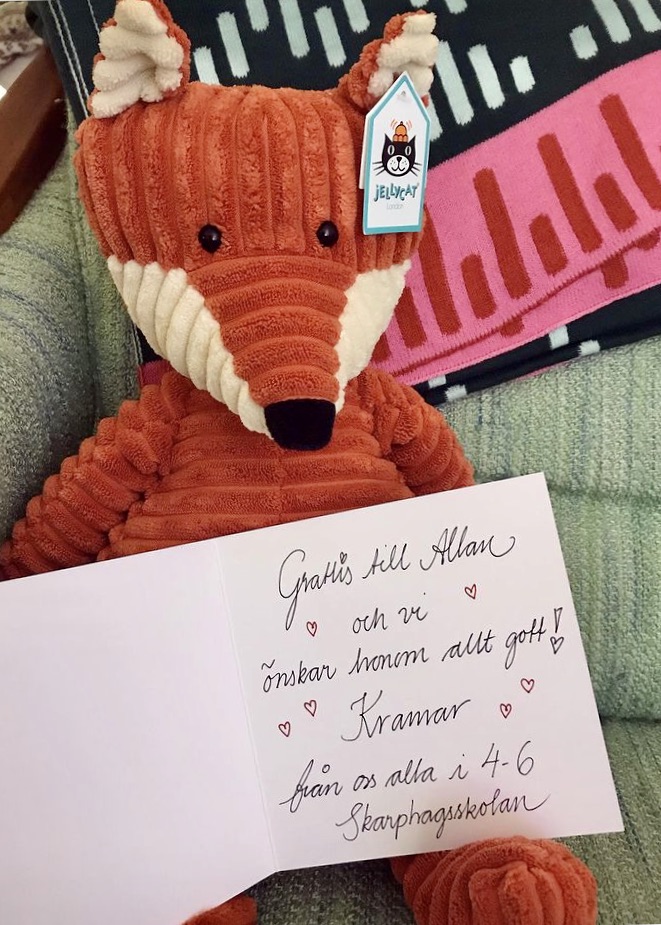 JELLYCAT
London
Grattis till Allan
och vi
önskar honom allt gott!
Kramar
från oss alla i 4-6
Skarphagsskolan